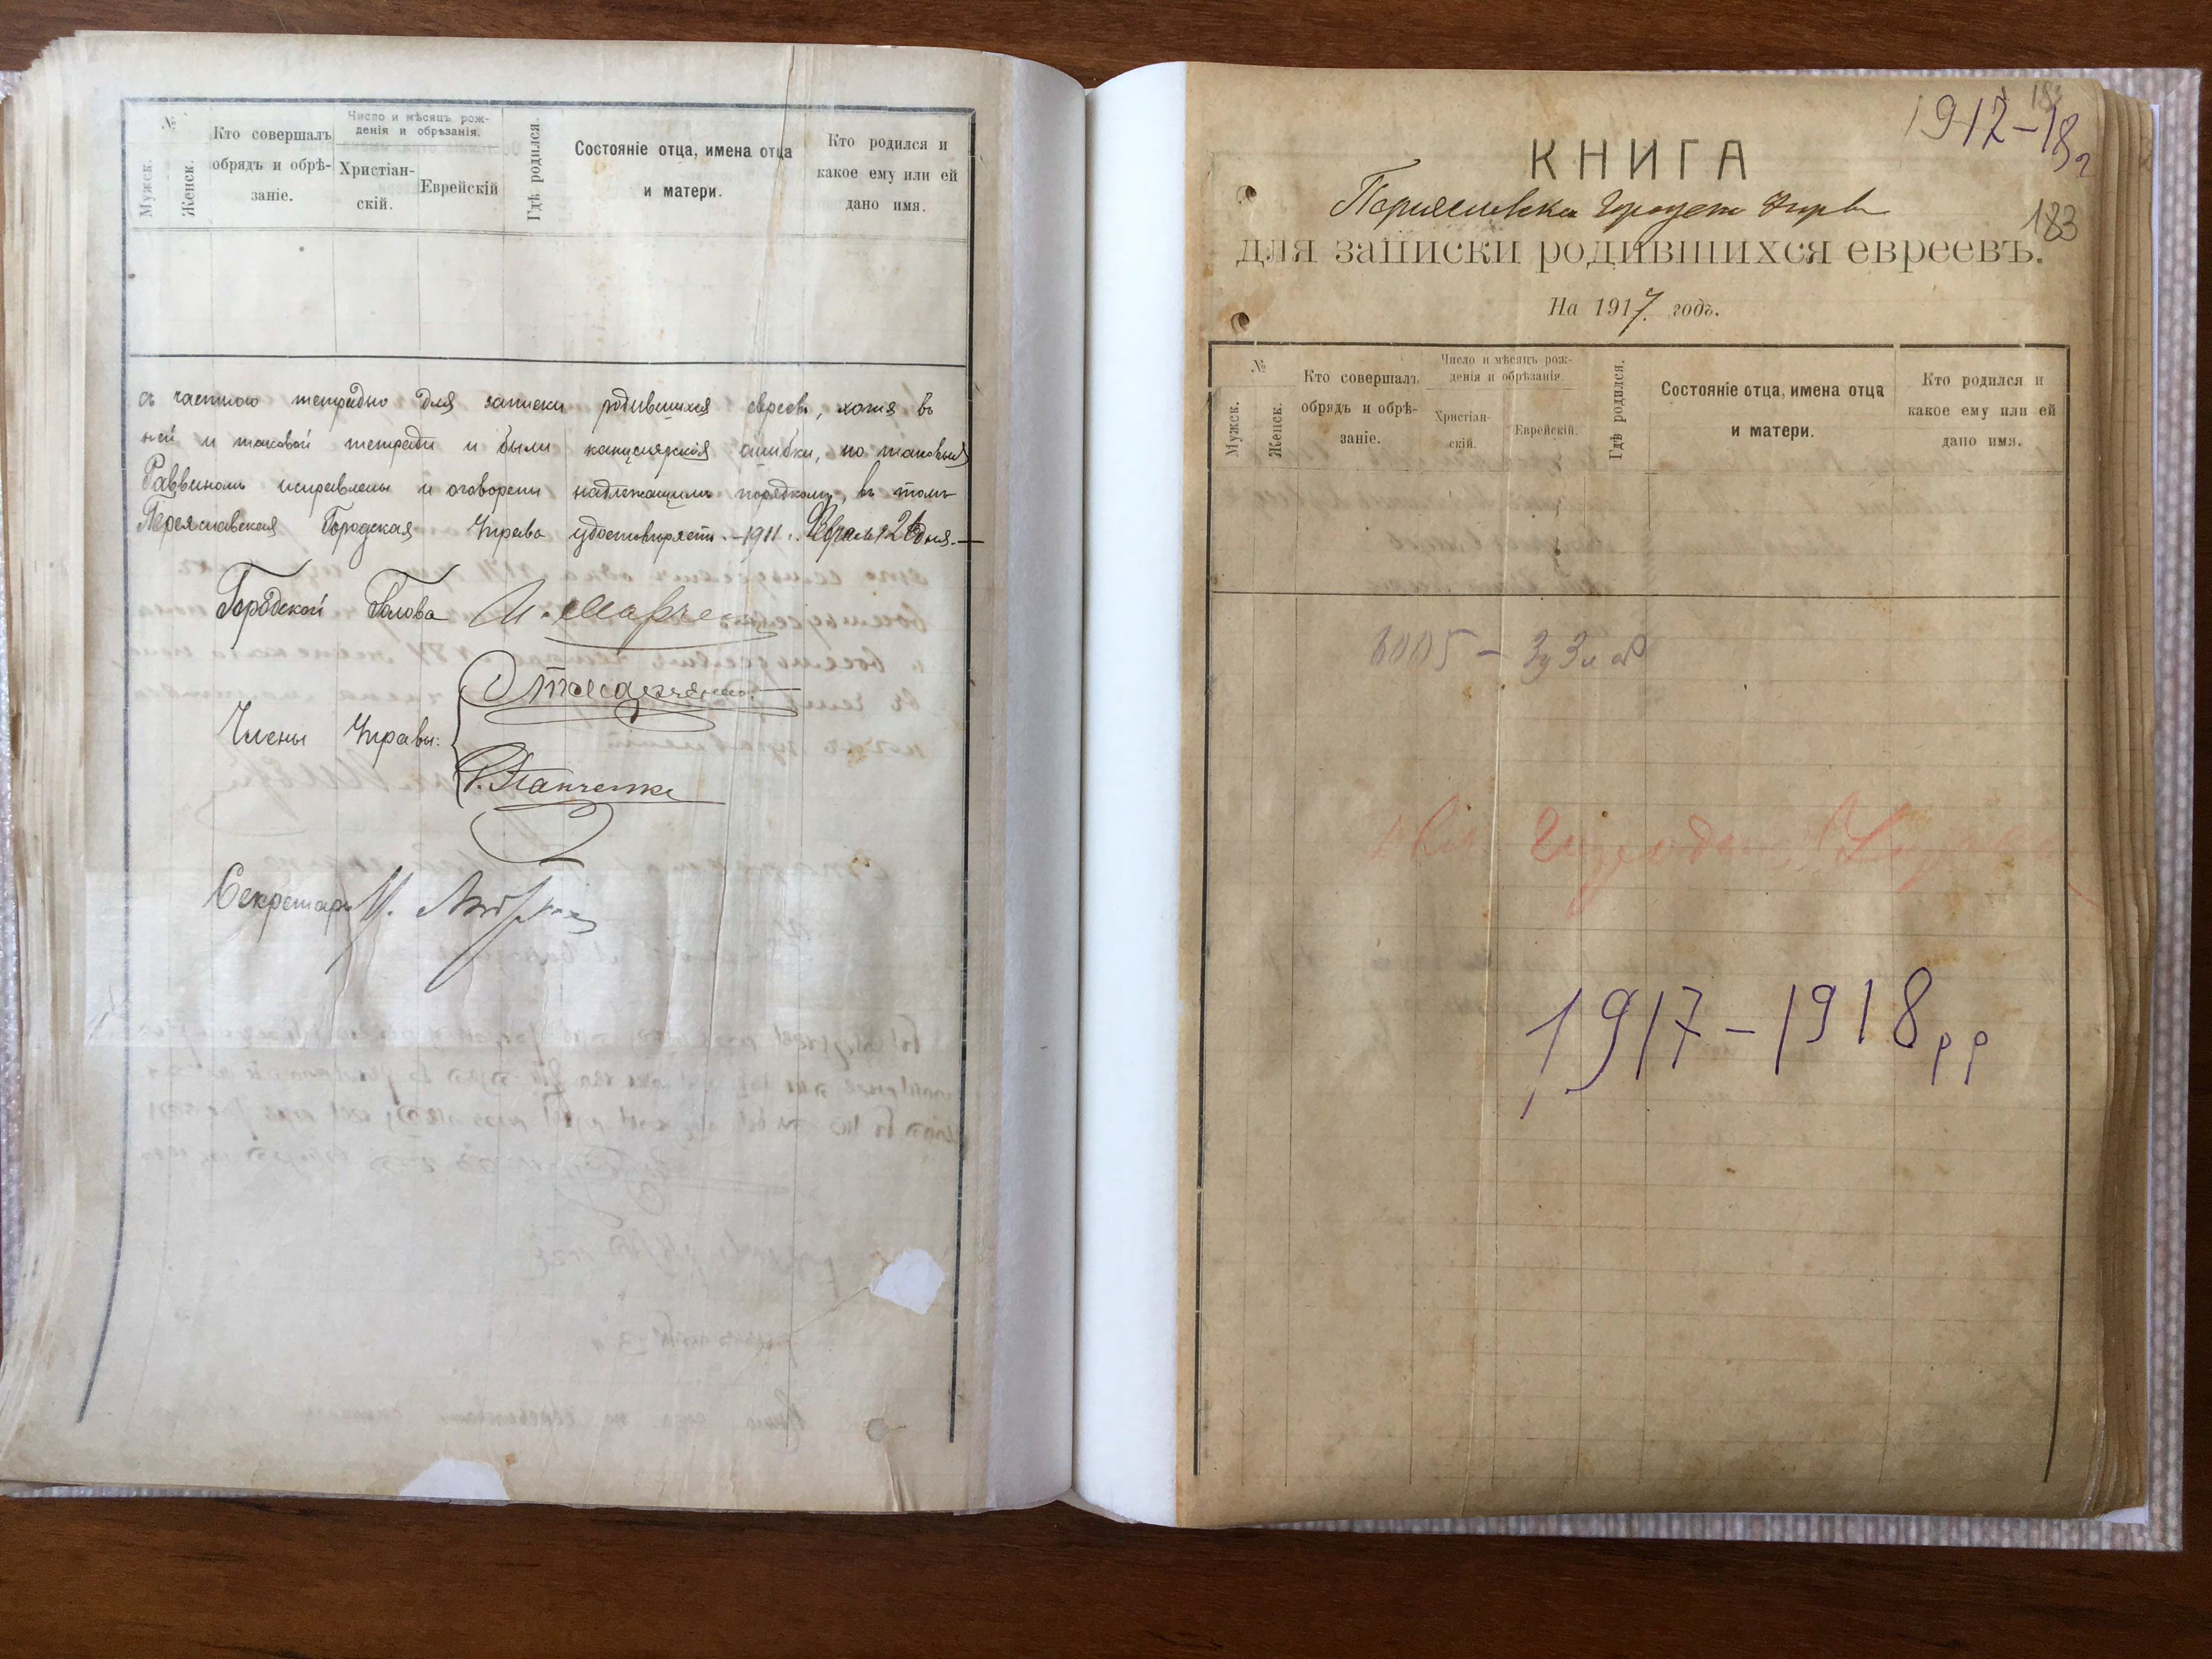 №
Мужск.
Женск.
Кто совершалъ
обрядъ и обрѣ-
заніе.
Число и мѣсяцъ рож-
денія и обрѣзанія.
Христіан-
скій.
Еврейскій
Гдѣ родился.
Состояніе отца, имена отца
и матери.
Кто родился и
какое ему или ей
дано имя.
съ частною тетрадью для записки родившихся евреевъ, хотя въ
ней и таковой тетради и были канцелярскія ошибки, но таковыя
Раввиномъ исправлены и оговорены надлежащимъ порядкомъ, въ томъ
Переяславская Городская Управа удостовѣряетъ. -1911 г. Февраля 21 дня.-
Городской Голова
Члены Управы:
Панченко
Секретарь
1917-18 г
183
КНИГА
183
для записки родившихся евреевъ.
На 1917 годъ.
№
Мужск.
Женск.
Кто совершалъ
обрядъ и обрѣ-
заніе.
Число и мѣсяцъ рож-
денія и обрѣзанія.
Христіан-
скій.
Еврейскій.
Гдѣ родился.
Состояніе отца, имена отца
и матери.
Кто родился и
какое ему или ей
дано имя.
1917-1918 рр